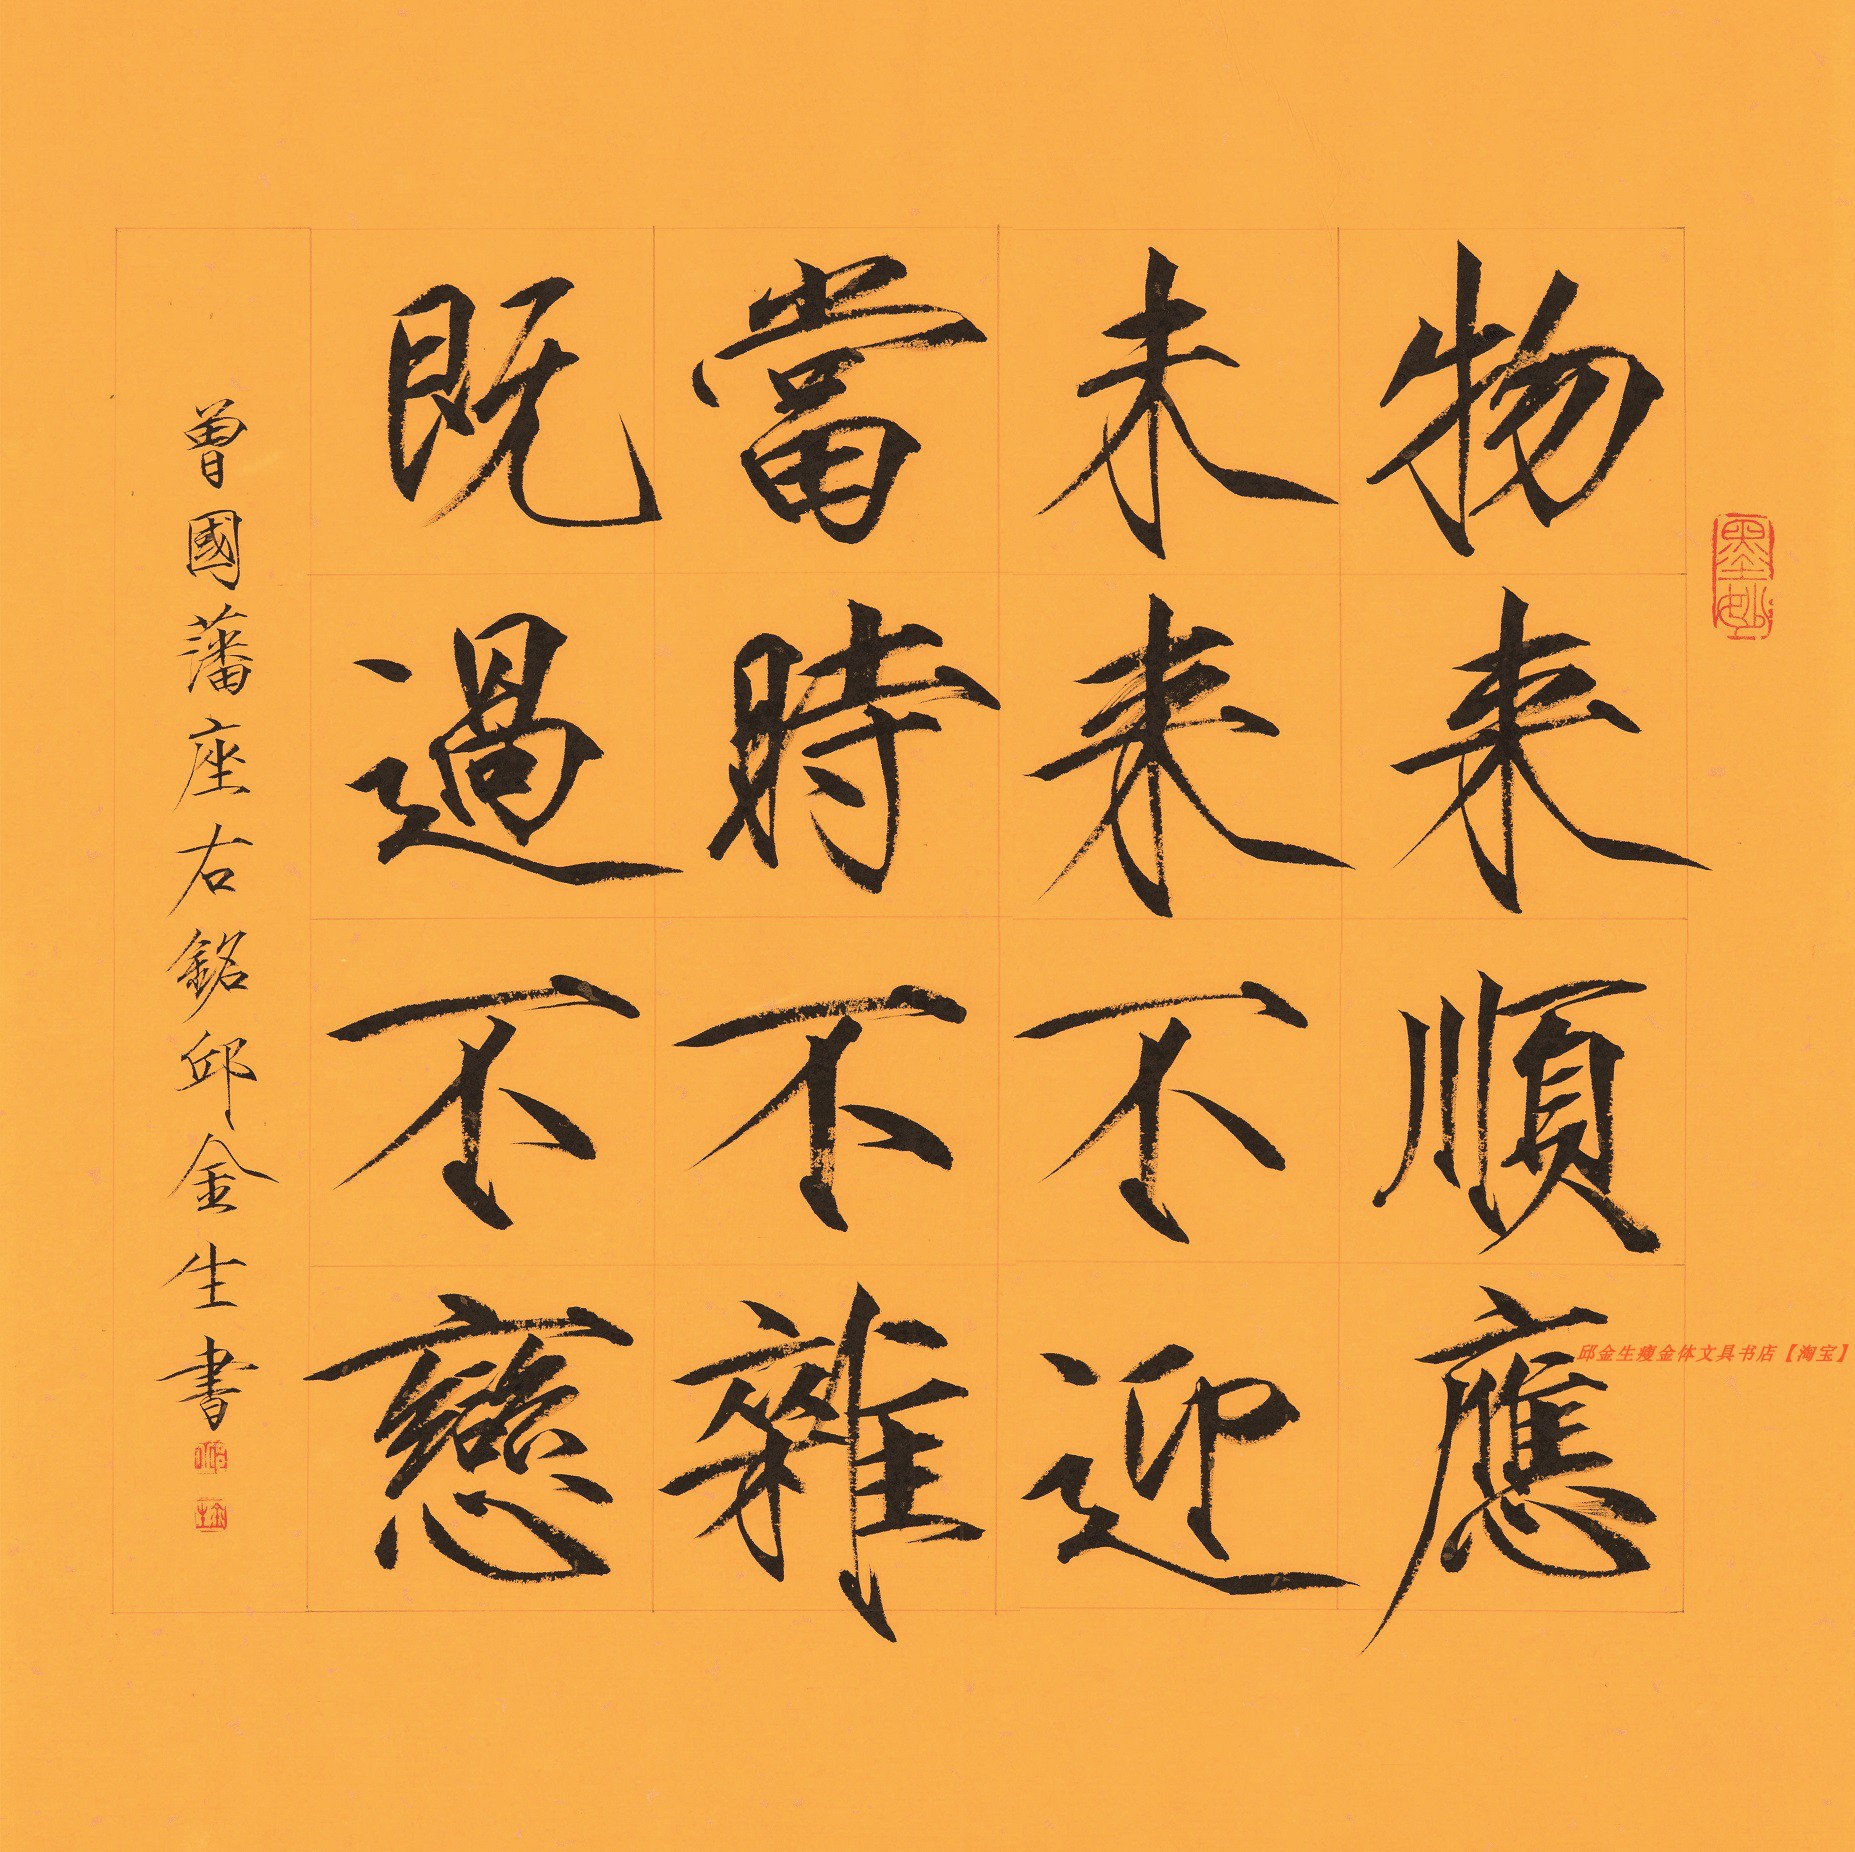 物来順應
未来不迎
當時不雜
既過不戀
曾國藩座右銘邱金生書
墨妙
邱金生瘦金体文具书店【淘宝】